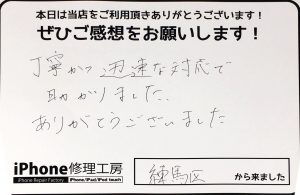 本日は当店をご利用頂きありがとうございます！
ぜひご感想をお願いします！
丁寧かつ迅速な対応で
助かりました。
ありがとうございました
iPhone修理工房
iPhone Repair Factory iPhone/iPad/iPod touch
練馬区 から来ました